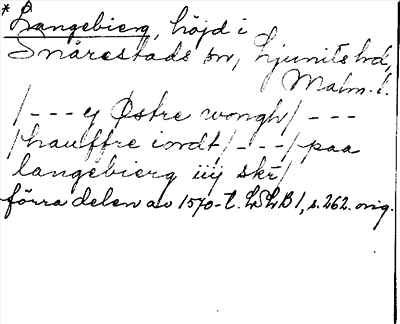 *Langebierg, höjd i
Snårestads sn, Ljunits hd,
Malm. l.
/--- y Østre wongh/ ---
/hauffre iordt/ ---/ paa
langebierg iiij skr̄/
förra delen av 1570-t. LSLB 1, s. 262. orig.